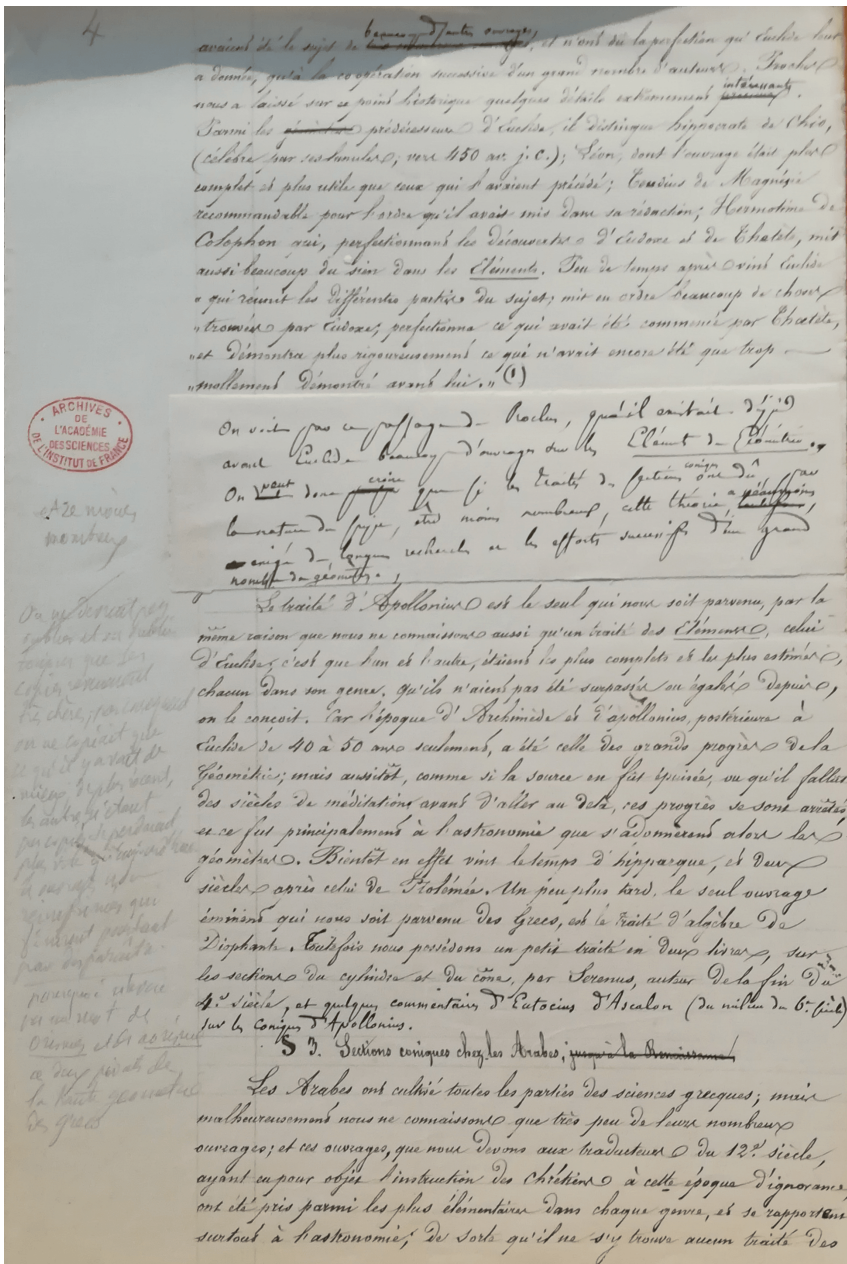 4
beaucoup d'autres ouvrages,
avaient été le sujet de, et n'ont dû la perfection qu'Euclide leur
a donnée, qu'à la coopération successive d'un grand nombre d'auteurs. Proclus
nous a laissé sur ce point historique quelques détails extrêmement intéressants.
Parmi les prédécesseurs d'Euclide, il distingue hippocrate de Chio,
(célèbre par ses lunules, vers 450 av. j. c.); Léon, dont l'ouvrage était plus
complet et plus utile que ceux qui l'avaient précédé; Teudius de Magnésie
recommandable pour l'ordre qu'il avait mis dans sa rédaction; Hermotime de
Colophon qui, perfectionnant les découvertes d'Eudoxe et de Théétète, mit
aussi beaucoup du sien dans les Eléments. Peu de temps après vint Euclide
" qui réunit les différentes parties du sujet; mit en ordre beaucoup de choses
" trouvées par Eudoxe, perfectionna ce qui avait été commencé par Théétète,
" et démontra plus rigoureusement ce qui n'avait encore été que trop
" mollement démontré avant lui." (1)
On voit par ce passage de Proclus, qu'il existait déjà
avant Euclide beaucoup d'ouvrages sur les Eléments de Géométrie.
On peut donc croire que si les traités des sections coniques ont dû par
la nature du sujet, être moins nombreux, cette théorie a
exigé de longues recherches et les efforts successifs d'un grand
nombre de géomètres.
ARCHIVES
DE
L'ACADÉMIE
DES SCIENCES
DE L'INSTITUT DE FRANCE
Le traité d'Apollonius est le seul qui nous soit parvenu, par la
même raison que nous ne connaissons aussi qu'un traité des Eléments, celui
d'Euclide; c'est que l'un et l'autre, étaient les plus complets et les plus estimés,
chacun dans son genre. Qu'ils n'aient pas été surpassés ou égalés depuis,
on le conçoit. Car l'époque d'Archimède et d'apollonius, postérieure à
Euclide de 40 à 50 ans seulement, a été celle des grands progrès de la
Géométrie; mais aussitôt, comme si la source en fut épuisée, ou qu'il fallut
des siècles de méditations avant d'aller au delà, ces progrès se sont arrêtés
et ce fut principalement à l'astronomie que s'adonnèrent alors les
géomètres. Bientôt en effet vint le temps d'hipparque, et deux
siècles après celui de Ptolémée. Un peu plus tard, le seul ouvrage
éminent qui nous soit parvenu des Grecs, est le traité d'algèbre de
Diophante. Toutefois nous possédons un petit traité en deux livres, sur
les sections du cylindre et du cône, par Serenus, auteur de la fin du
4e siècle, et quelques commentaires d'Eutocius d'Ascalon (du milieu du 6e siècle)
sur les coniques d'Apollonius.
§ 3. Sections coniques chez les Arabes, jusqu'à la Renaissance
Les Arabes ont cultivé toutes les parties des sciences grecques; mais
malheureusement nous ne connaissons que très peu de leurs nombreux
ouvrages; et ces ouvrages, que nous devons aux traducteurs du 12e siècle,
ayant eu pour objet l'instruction des chrétiens à cette époque d'ignorance,
ont été pris parmi les plus élémentaires dans chaque genre, et se rapportent
surtout à l'astronomie; de sorte qu'il ne s'y trouve aucun traité des